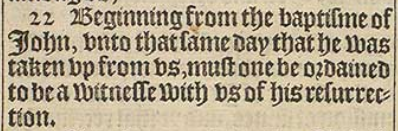 22 Beginning from the baptiſme of
John, vnto that ſame day that he was
taken vp from vs, muſt one be ordained
to be a witneſſe with vs of his reſurrec-
tion.